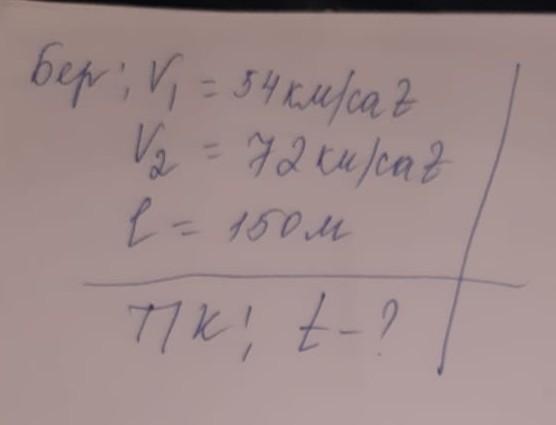 Бер; V₁ = 54км/саz
V₂ = 72км/саz
l = 150м
ТІК! t-?